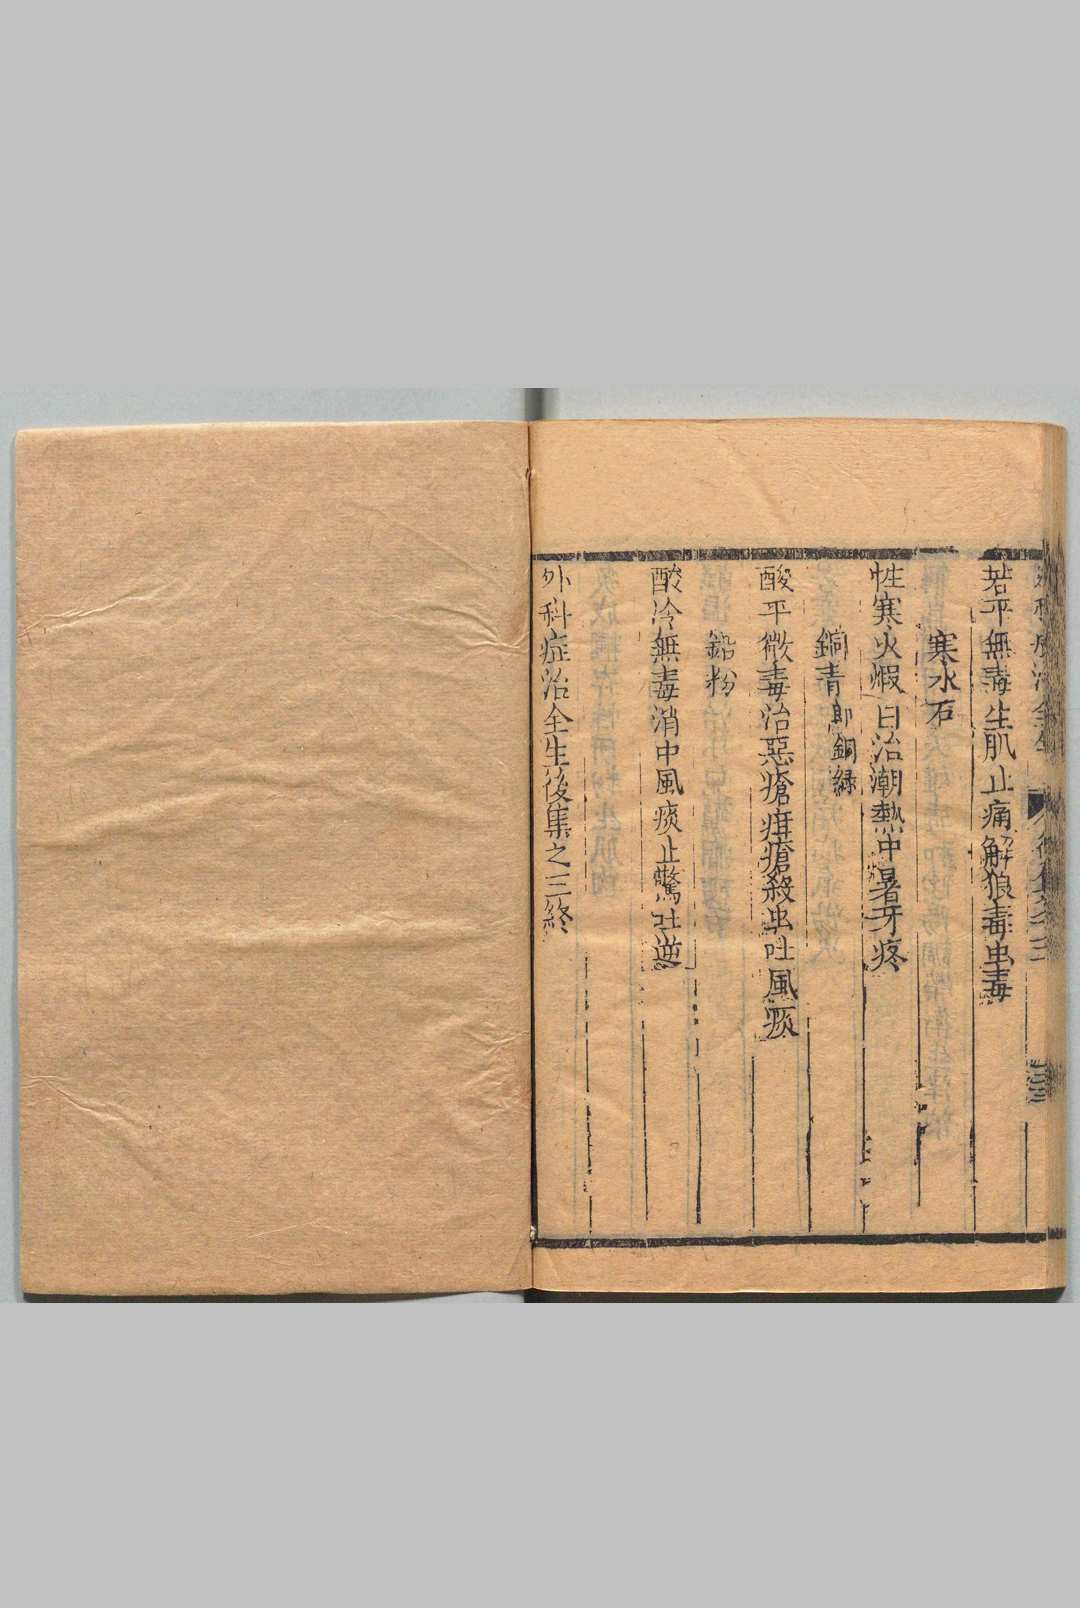 苦平無毒生肌止痛解狼毒虫毒
寒水石
性寒火煆白治潮熱中暑牙疼
銅青即銅綠
酸平微毒治惡瘡疳瘡殺虫吐風痰
鉛粉
酸冷無毒消中風痰止驚吐逆
外科症治全生後集之三終